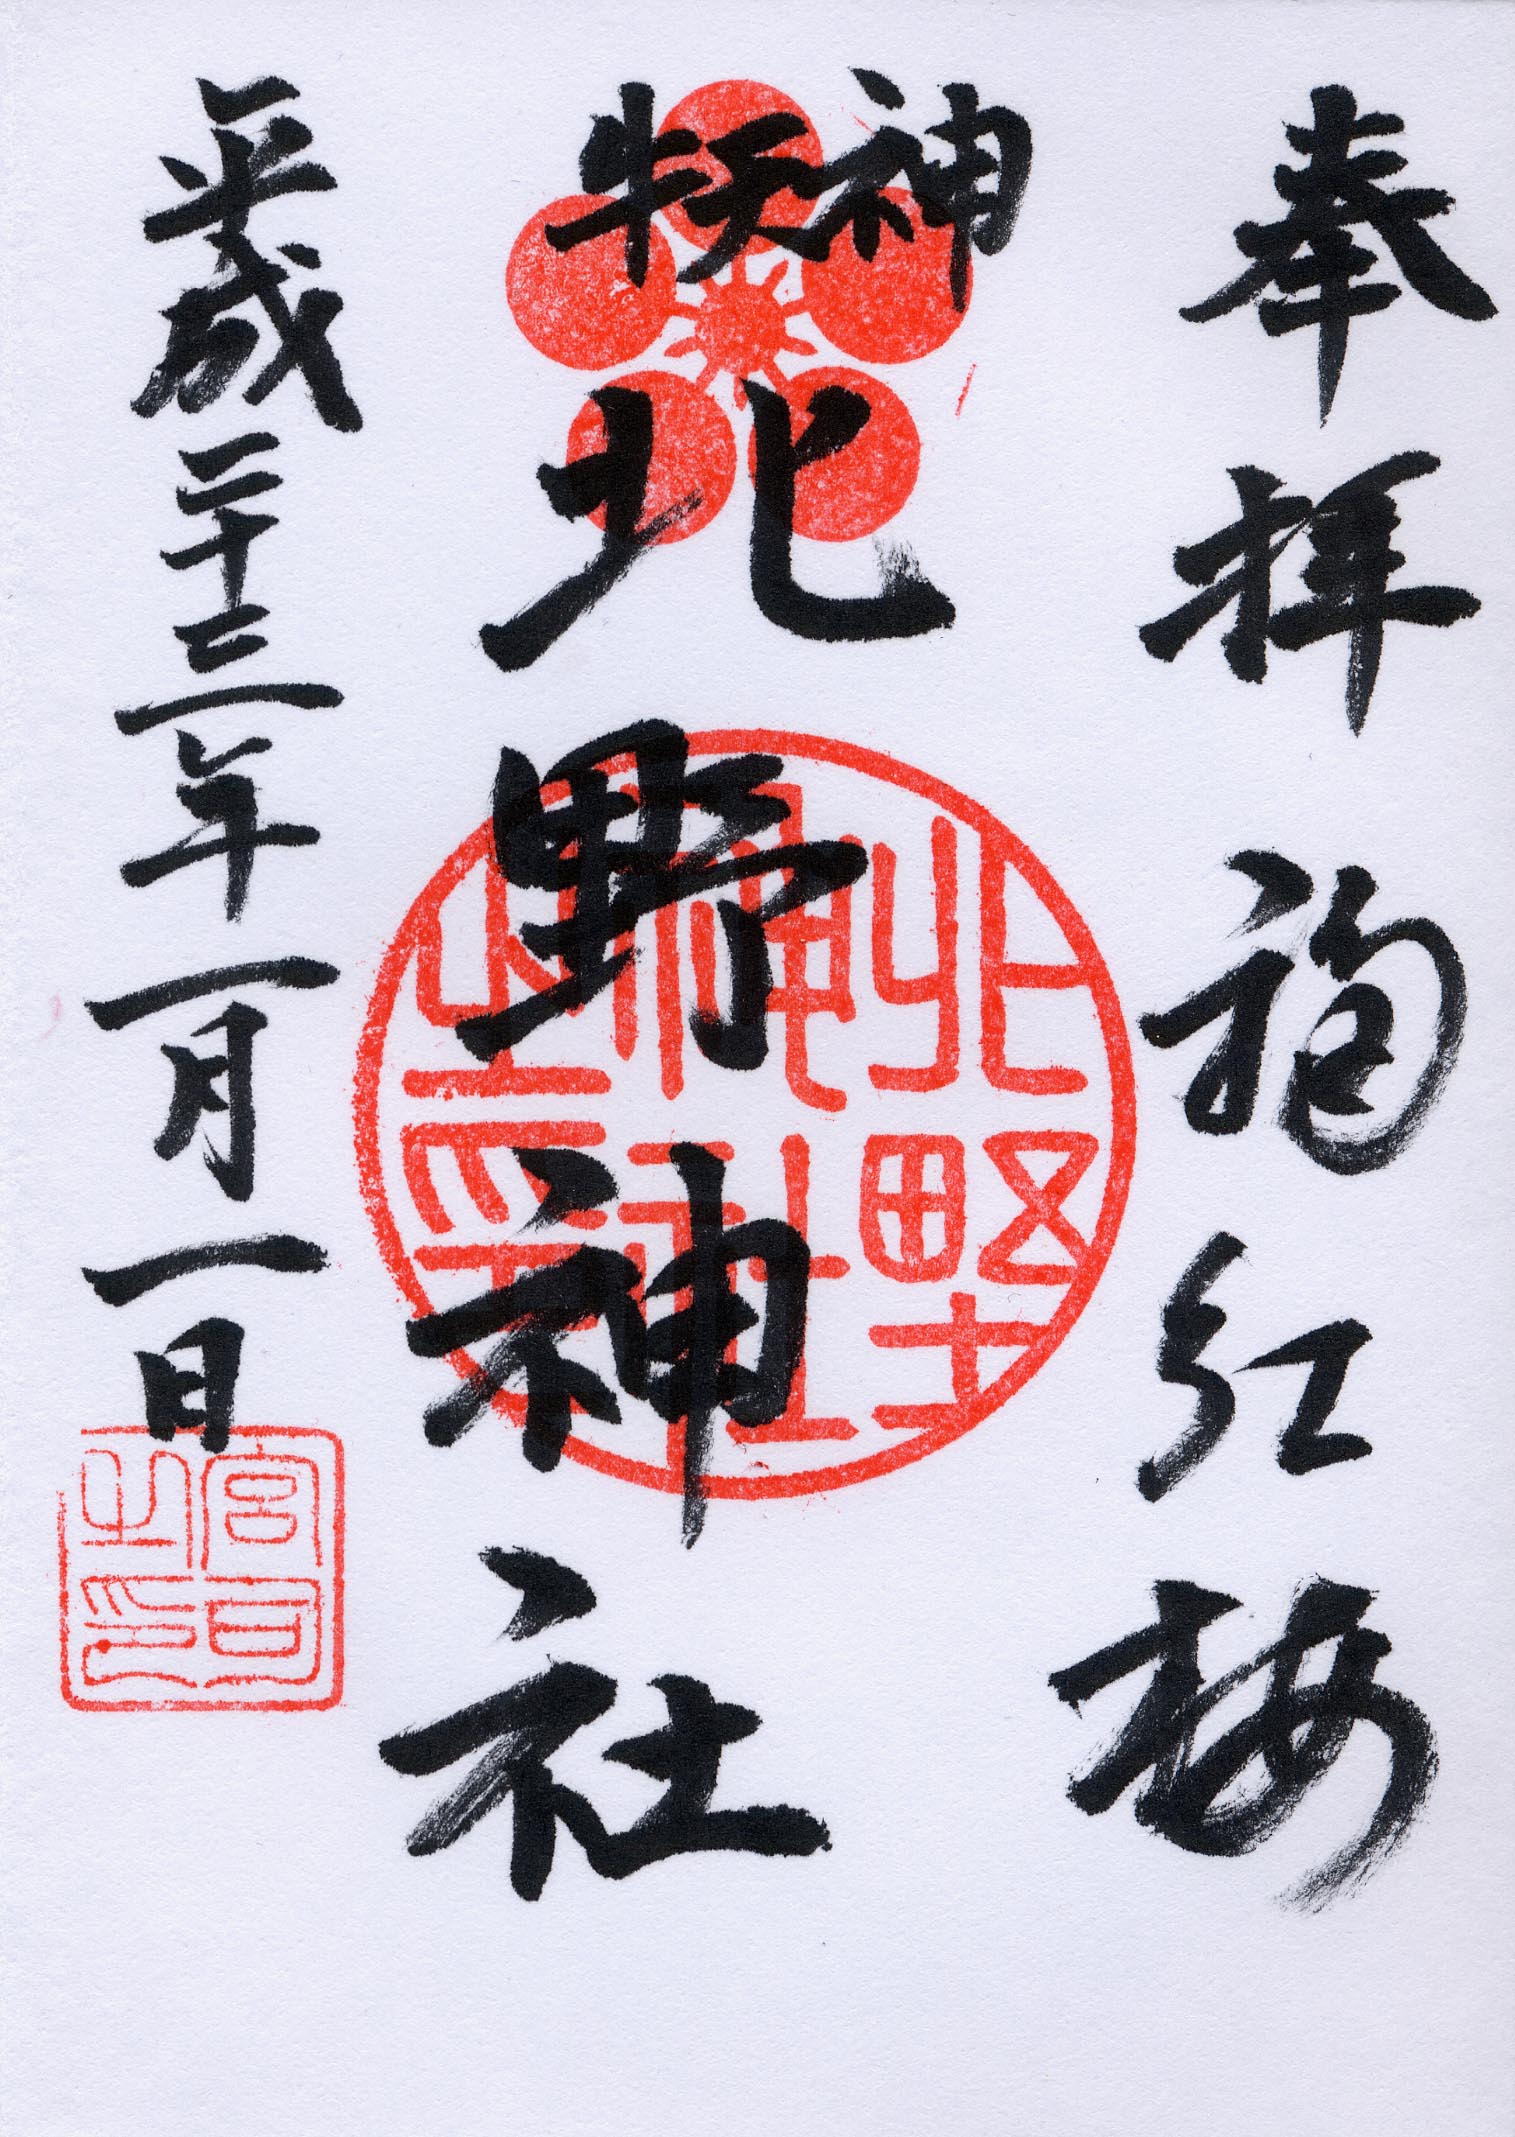 奉拝 福紅梅
牛天神
北野神社
北野神社之印
平成二十三年一月一日
宮司之印